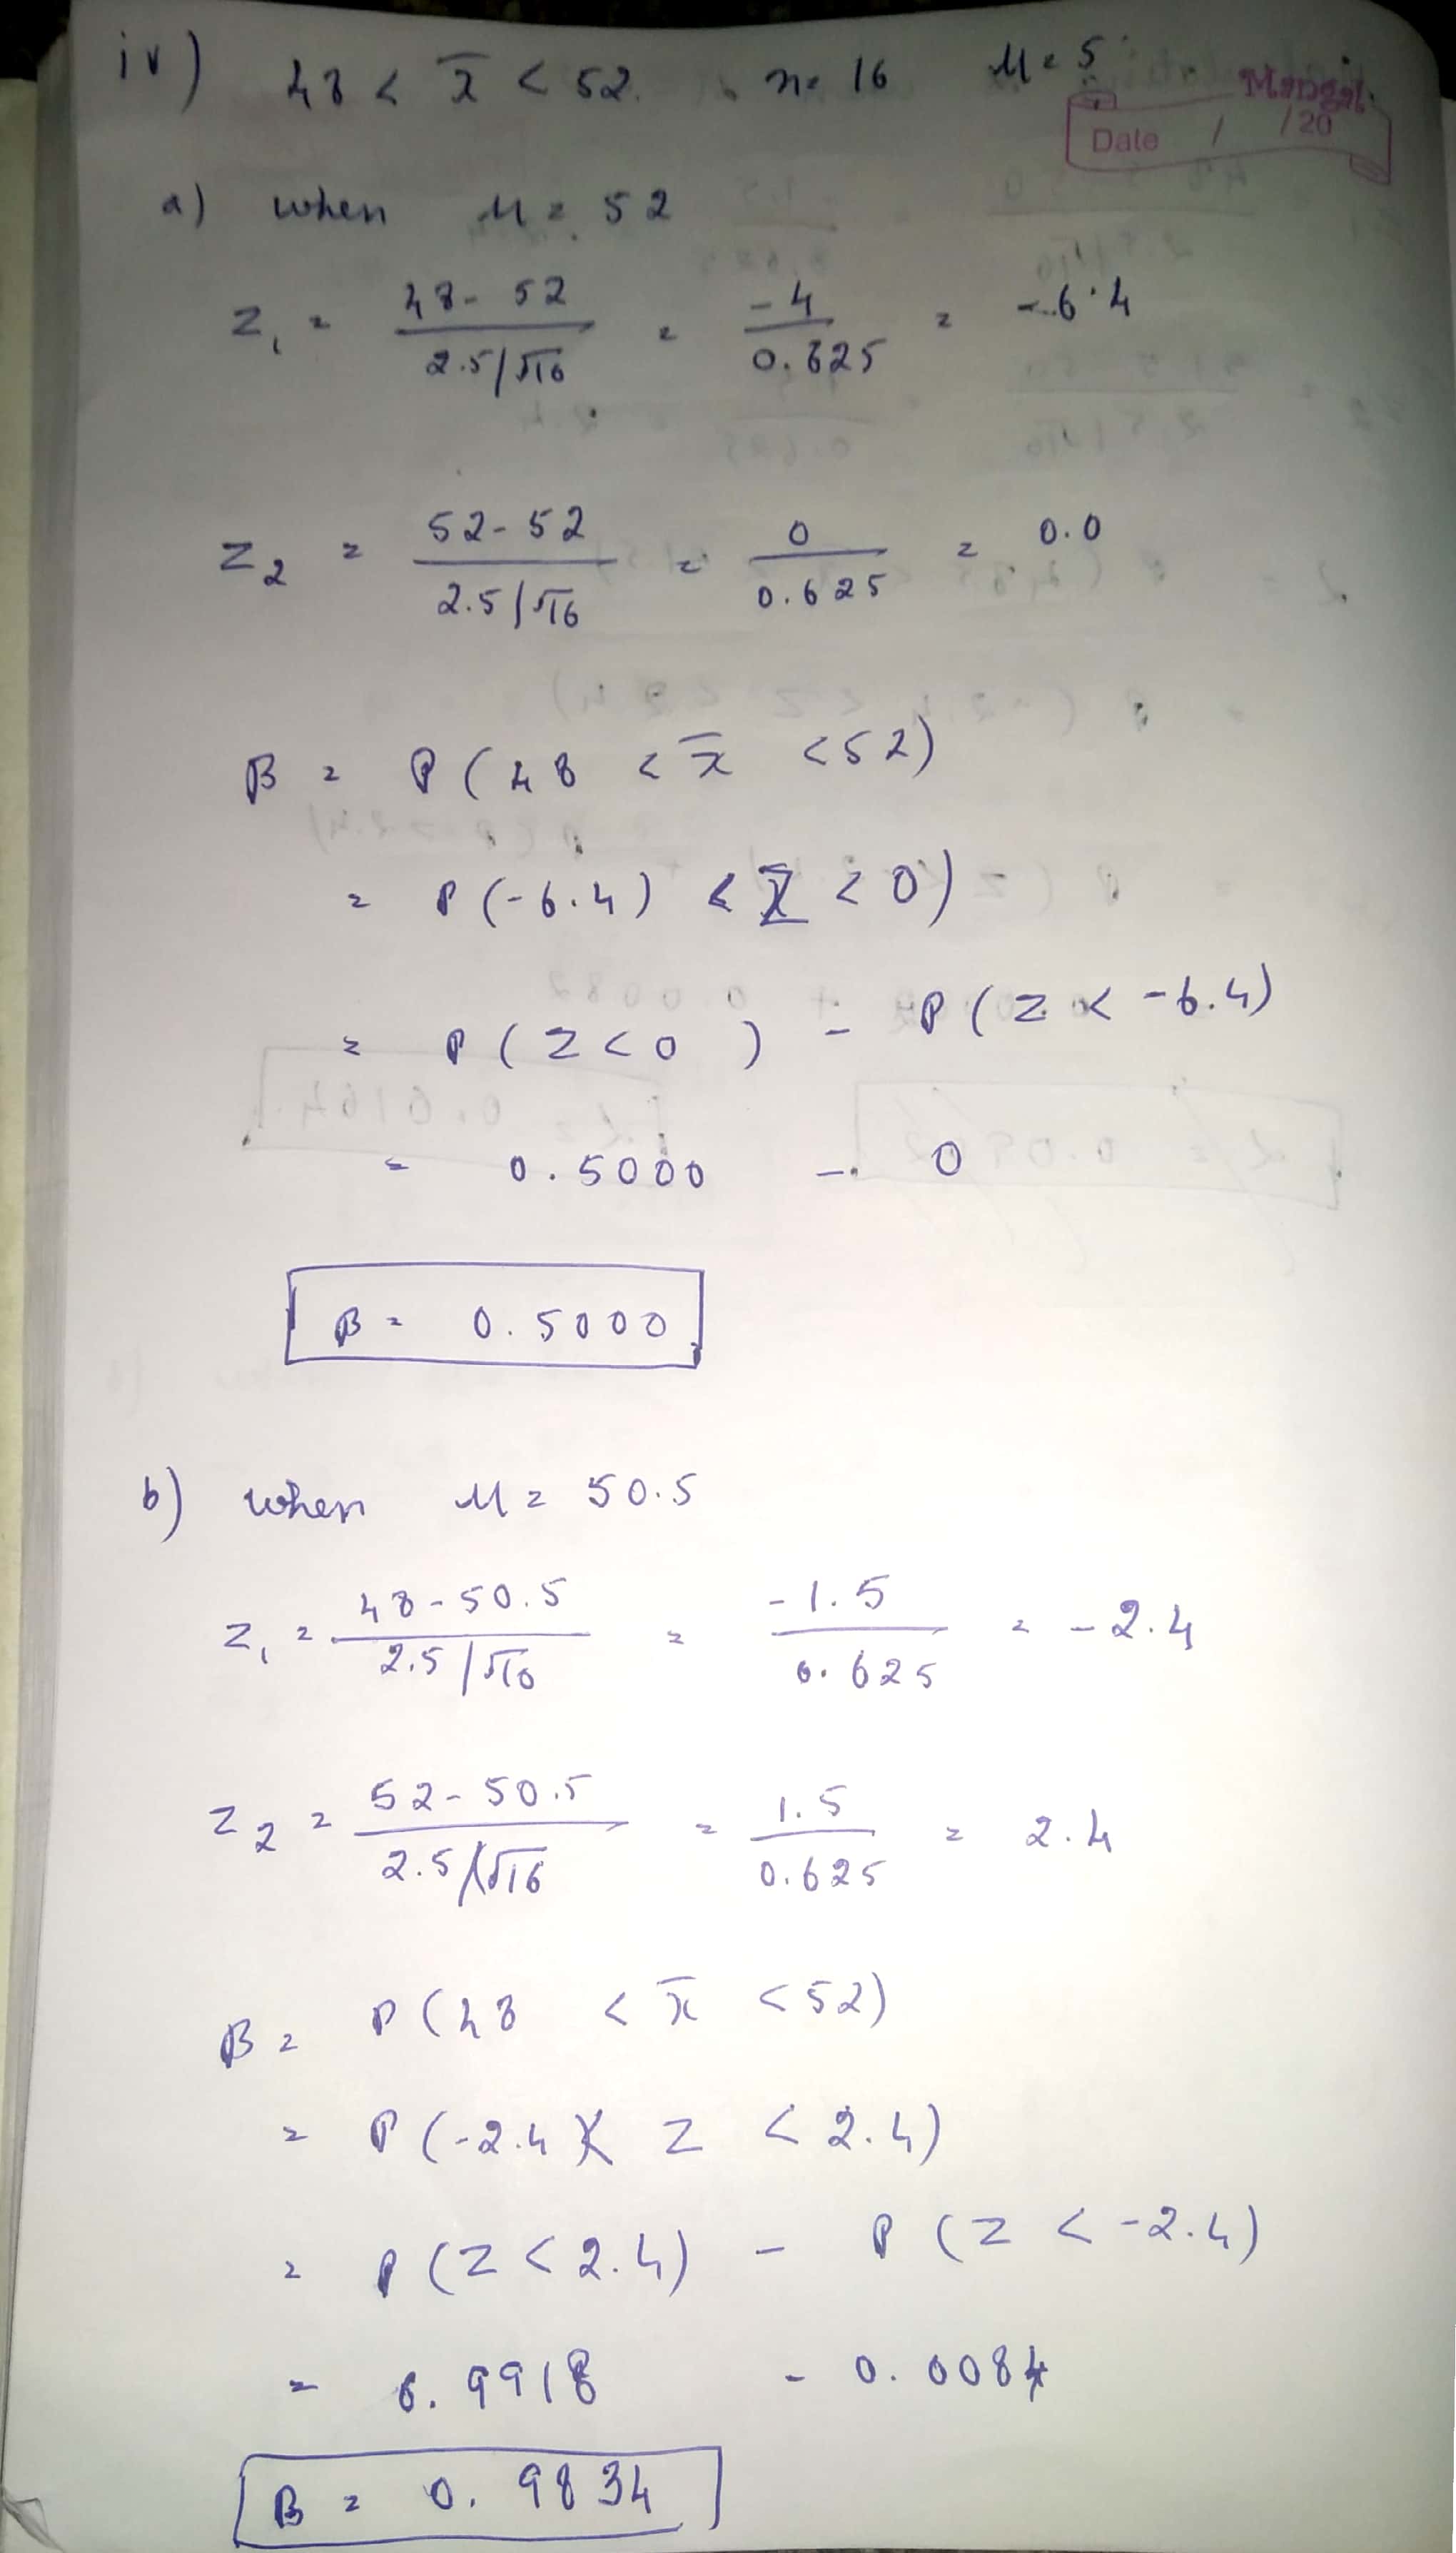 iv) 48 < x̄ < 52. n = 16 μ = 5
Mangal
Date / /20
a) when μ = 52
z₁ = (48 - 52)/(2.5/√16) = -4/0.625 = -6.4
z₂ = (52 - 52)/(2.5/√16) = 0/0.625 = 0.0
β = P(48 < x̄ < 52)
= P(-6.4) < Z < 0)
= P(Z < 0) - P(Z < -6.4)
= 0.5000 - 0
β = 0.5000
b) when μ = 50.5
z₁ = (48 - 50.5)/(2.5/√16) = -1.5/0.625 = -2.4
z₂ = (52 - 50.5)/(2.5/√16) = 1.5/0.625 = 2.4
β = P(48 < x̄ < 52)
= P(-2.4 < Z < 2.4)
= P(Z < 2.4) - P(Z < -2.4)
= 0.9918 - 0.0084
β = 0.9834